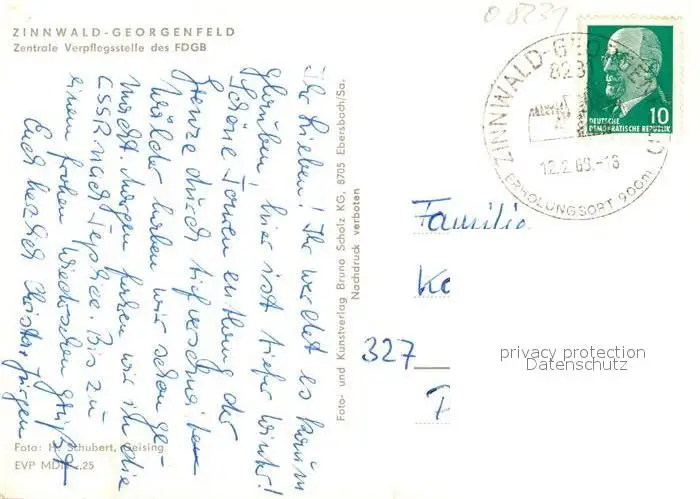 ZINNWALD-GEORGENFELD
Zentrale Verpflegsstelle des FDGB
Ihr Lieben! Ihr werdet es kaum
glauben, hier ist tiefer Winter!
Schöne Touren entlang der
Grenze durch tiefverschneite
Wälder haben wir schon ge-
macht. Morgen fahren wir in die
CSSR nach Teplice. Bis zu
einem frohen Wiedersehen grüßt
Euch herzlich Christa + Jürgen
Foto: H. Schubert, Geising
EVP MDN -,25
Foto- und Kunstverlag Bruno Scholz KG., 8705 Ebersbach/Sa.
Nachdruck verboten
08231
ZINNWALD-GEORGENF
823
12.2.65.-16
ERHOLUNGSORT 900m
10
DEUTSCHE
DEMOKRATISCHE REPUBLIK
Familie
Ko
327
privacy protection
Datenschutz